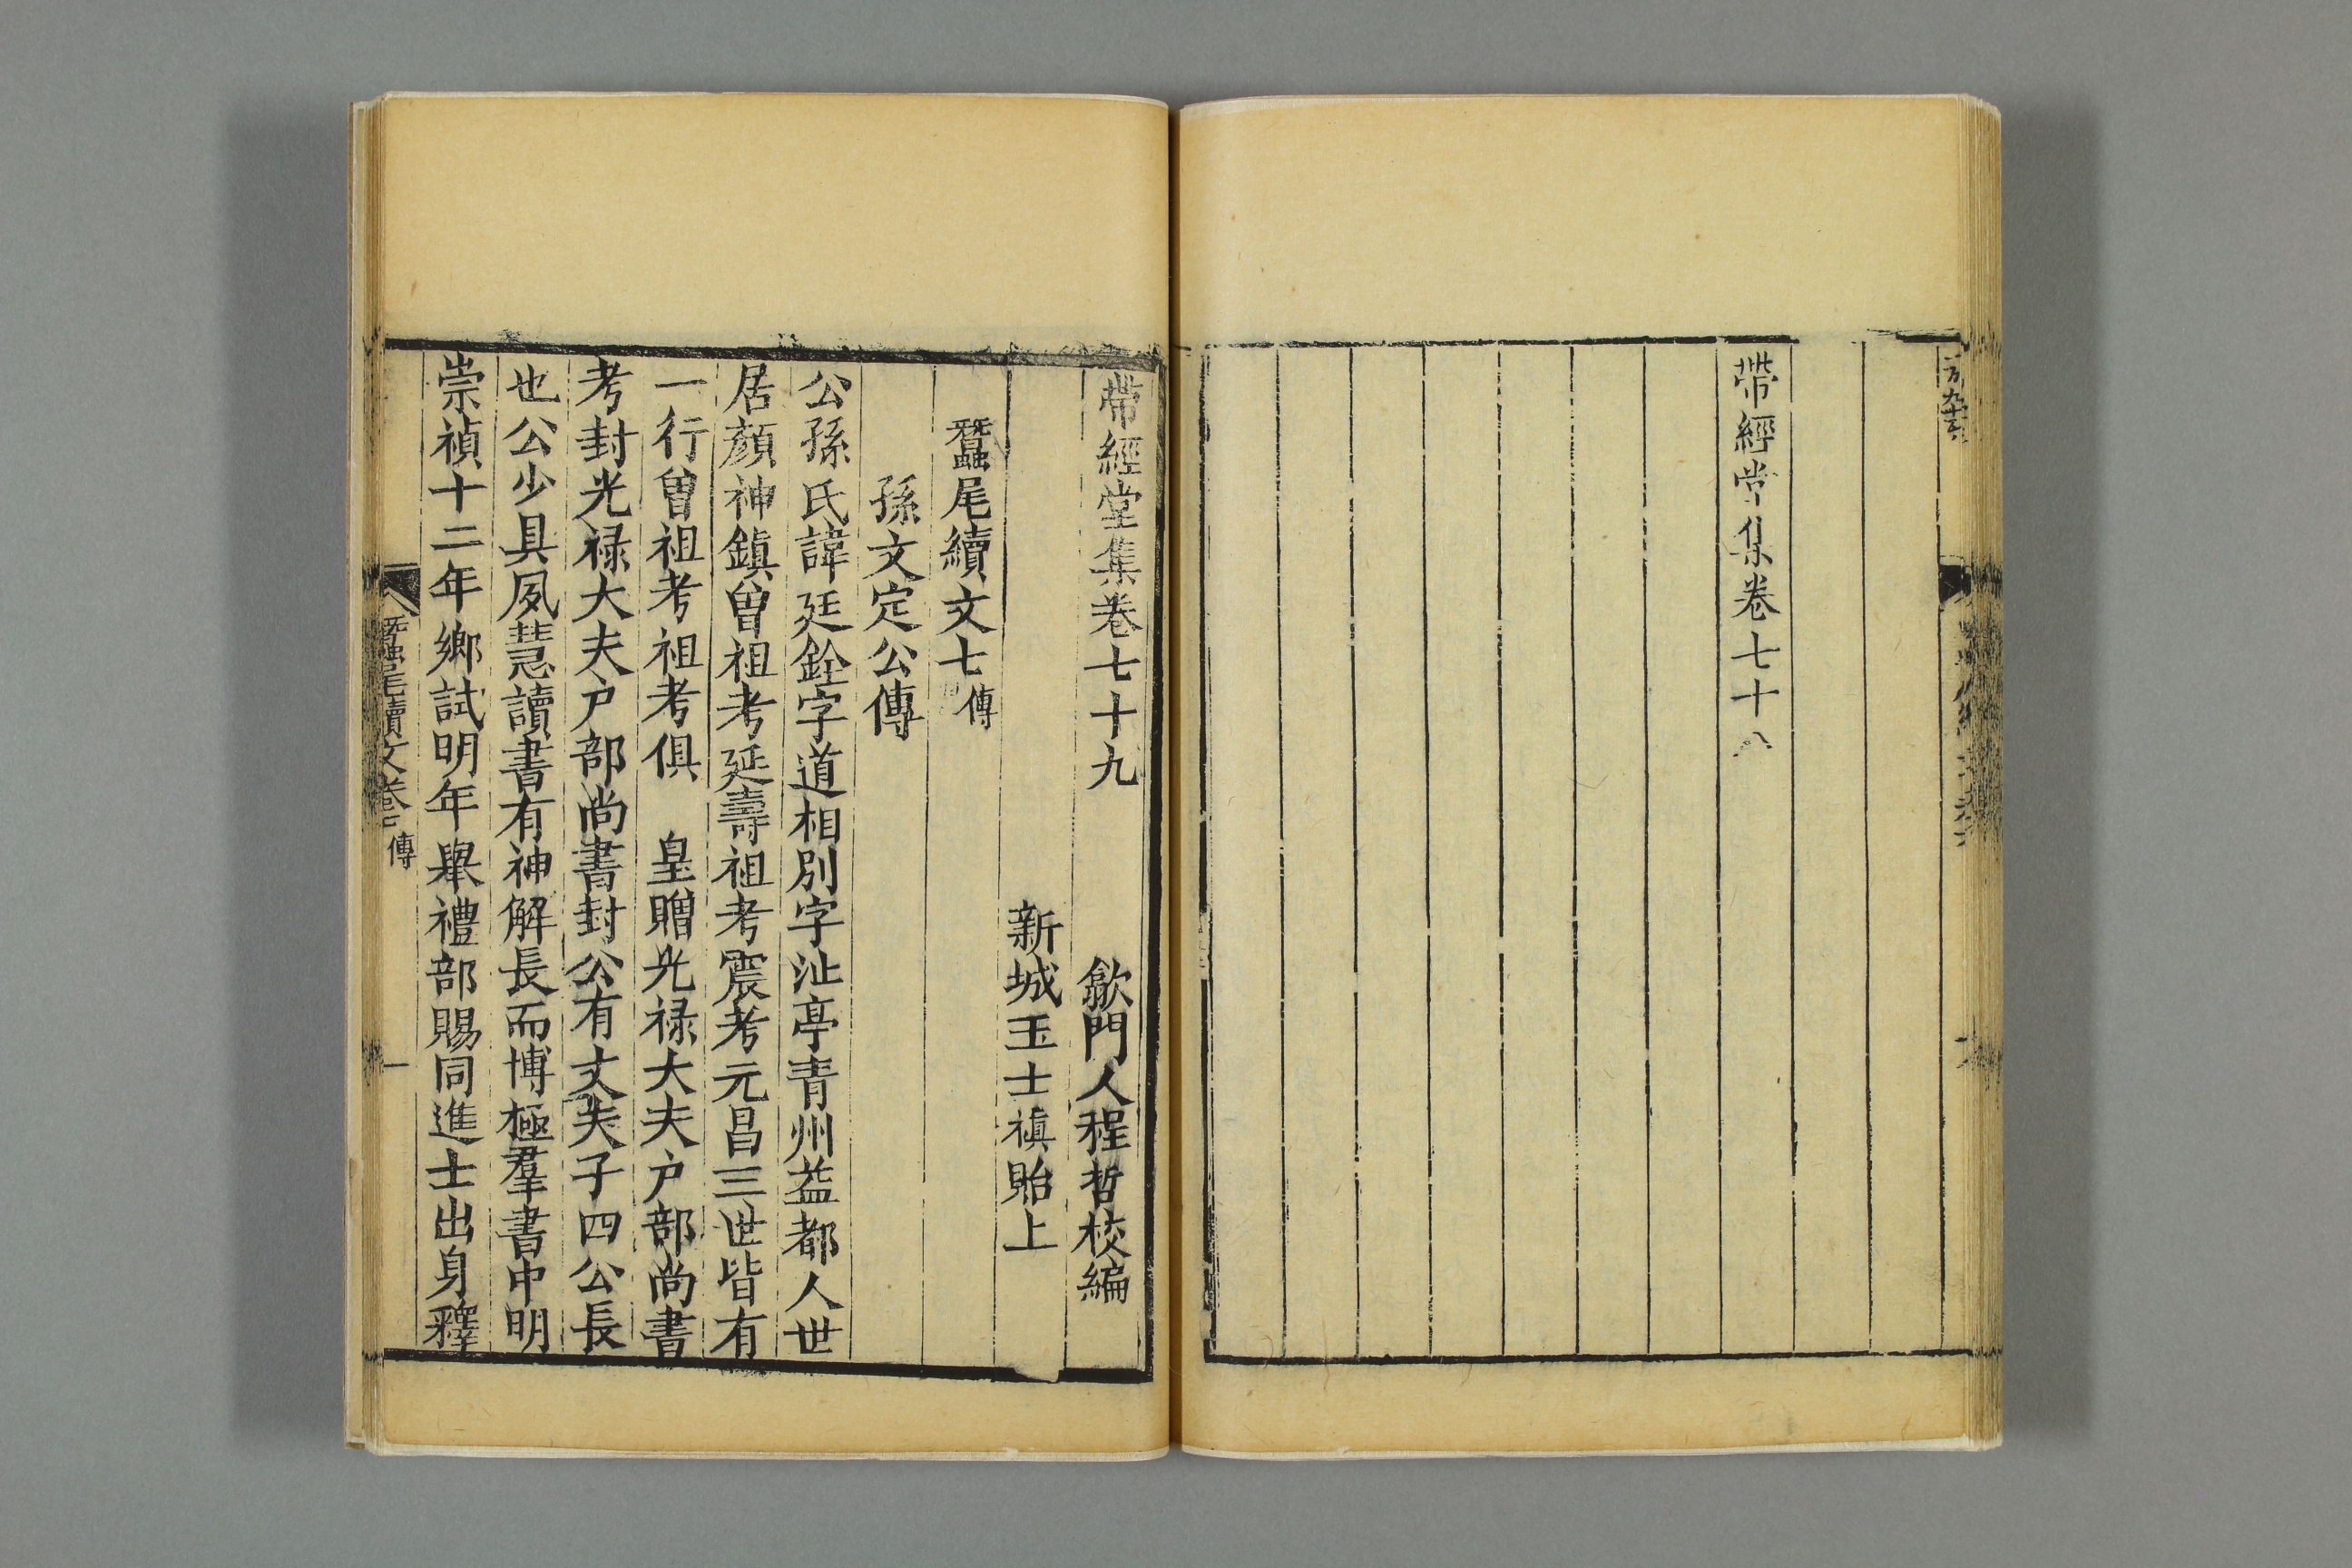 帶經堂集卷七十八
帶經堂集卷七十九
歙門人程哲校編
新城王士禛貽上
蠶尾續文七傳
孫文定公傳
公孫氏諱廷銓字道相別字沚亭青州益都人世
居顏神鎮曾祖考延壽祖考震考元昌三世皆有
一行曾祖考祖考俱　皇贈光禄大夫户部尚書
考封光禄大夫户部尚書封公有丈夫子四公長
也公少具夙慧讀書有神解長而博極羣書中明
崇禎十二年鄉試明年舉禮部賜同進士出身釋
蠶尾續文卷
傳
一